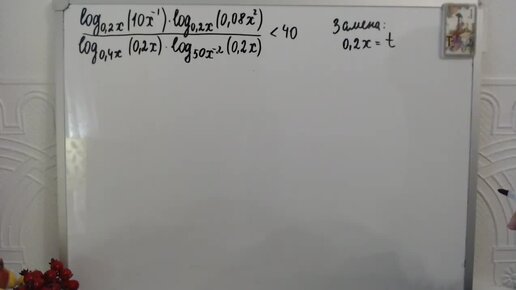 log₀,₂ₓ(10x⁻¹)·log₀,₂ₓ(0,08x²)
log₀,₄ₓ(0,2x)·log₅₀ₓ⁻²(0,2x)
< 40
Замена:
0,2x = t